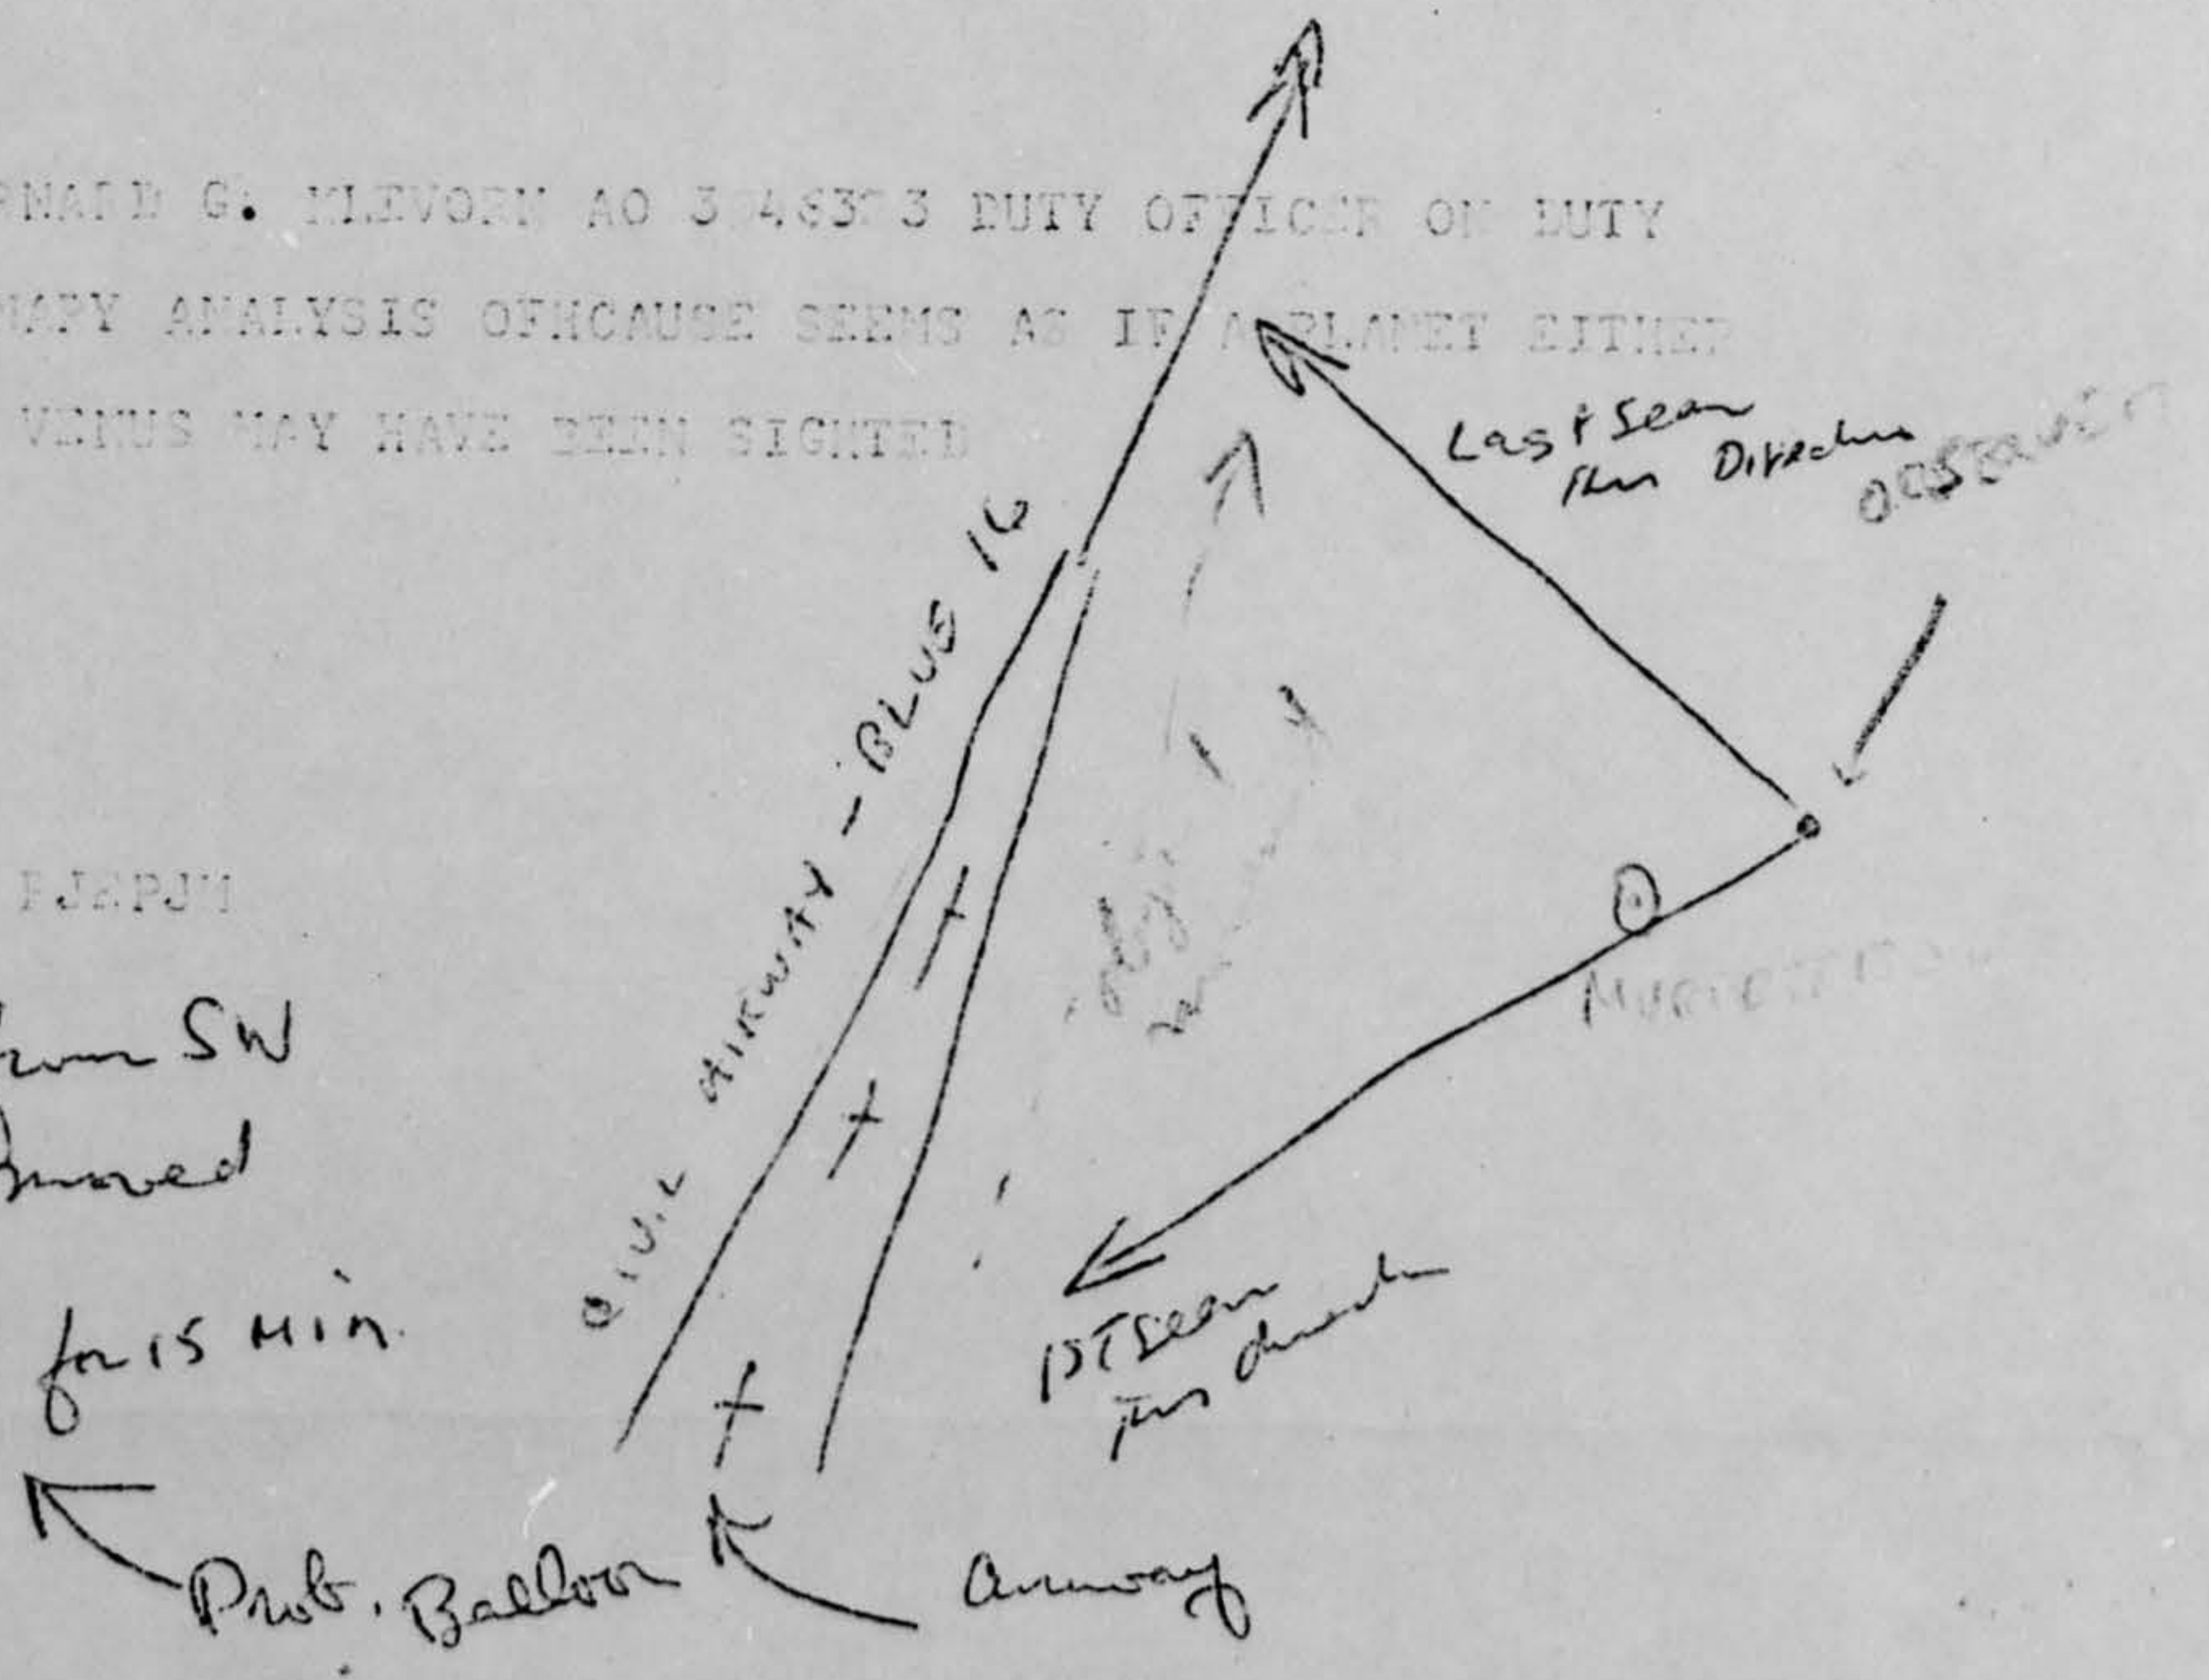 G. KLEVORN AO 3 DUTY OFFICER ON DUTY
ANALYSIS OFMCAUSE SEEMS AS IF A PLANET EITHER
VENUS MAY HAVE BEEN SIGHTED
Last Seen
this Direction
OBSERVER
CIVIL AIRWAY - BLUE 16
PJEPJM
SW
moved
for 15 Min.
1ST Seen
this direction
Prob. Balloon
Airway